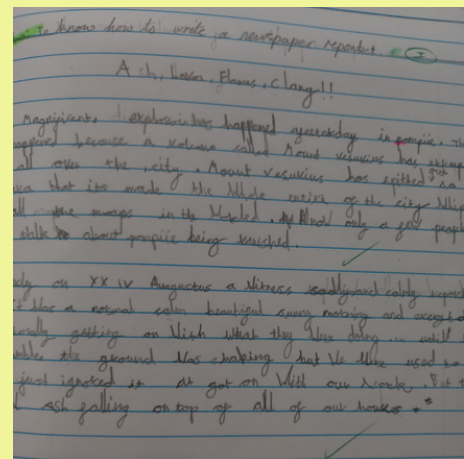 I know how to write a newspaper reportct I
Ash, Lava, Flames, Clang!!
Magnificant, explosion has happened yesterday in pompie. Th
appened because a volcano called Mount vesuvius has
all over the city. Mount Vesuvius has spitted out so
va that its made the Whole entire of the city
all the maps in the World. Now only a few people
talk about pompiie being vanished.
on XX IV Augustus a Witness and calmly
Was a normal calm beautiful sunny morning and
getting on With what they Were doing... until
the ground Was shaking but We Were used to
just ignored it at got on With our work. But t
ash falling on top of all of our houses